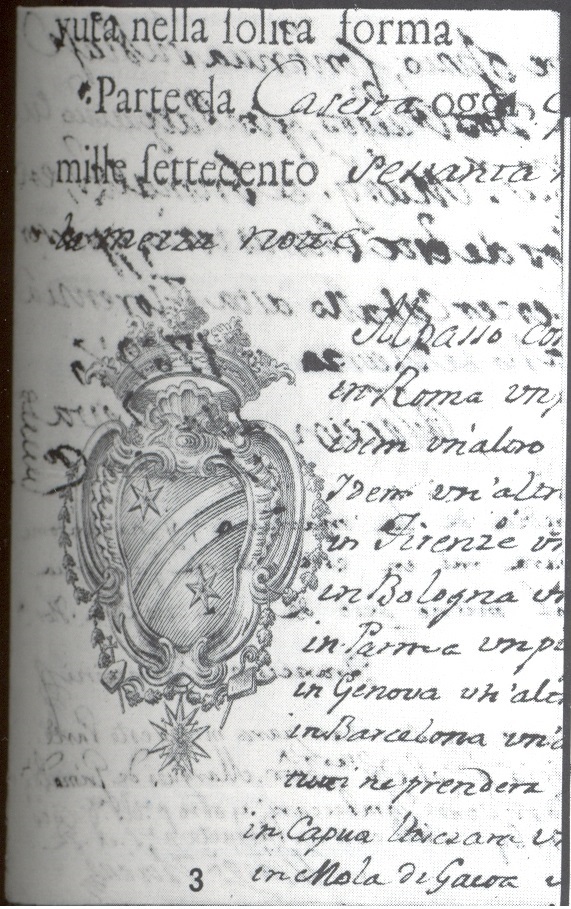 vuta nella ſolita forma
Parte da Caserta oggi
mille ſettecento sessanta
la mezza notte
Al passo
in Roma vn
idem vn'altro
Idem vn'altr
in Firenze vn
in Bologna vn
in Parma vn p
in Genova vn'altr
in Barcelona vn'a
tutti ne prendera
in Capua lascara v
in Mola di Gaeta v
3